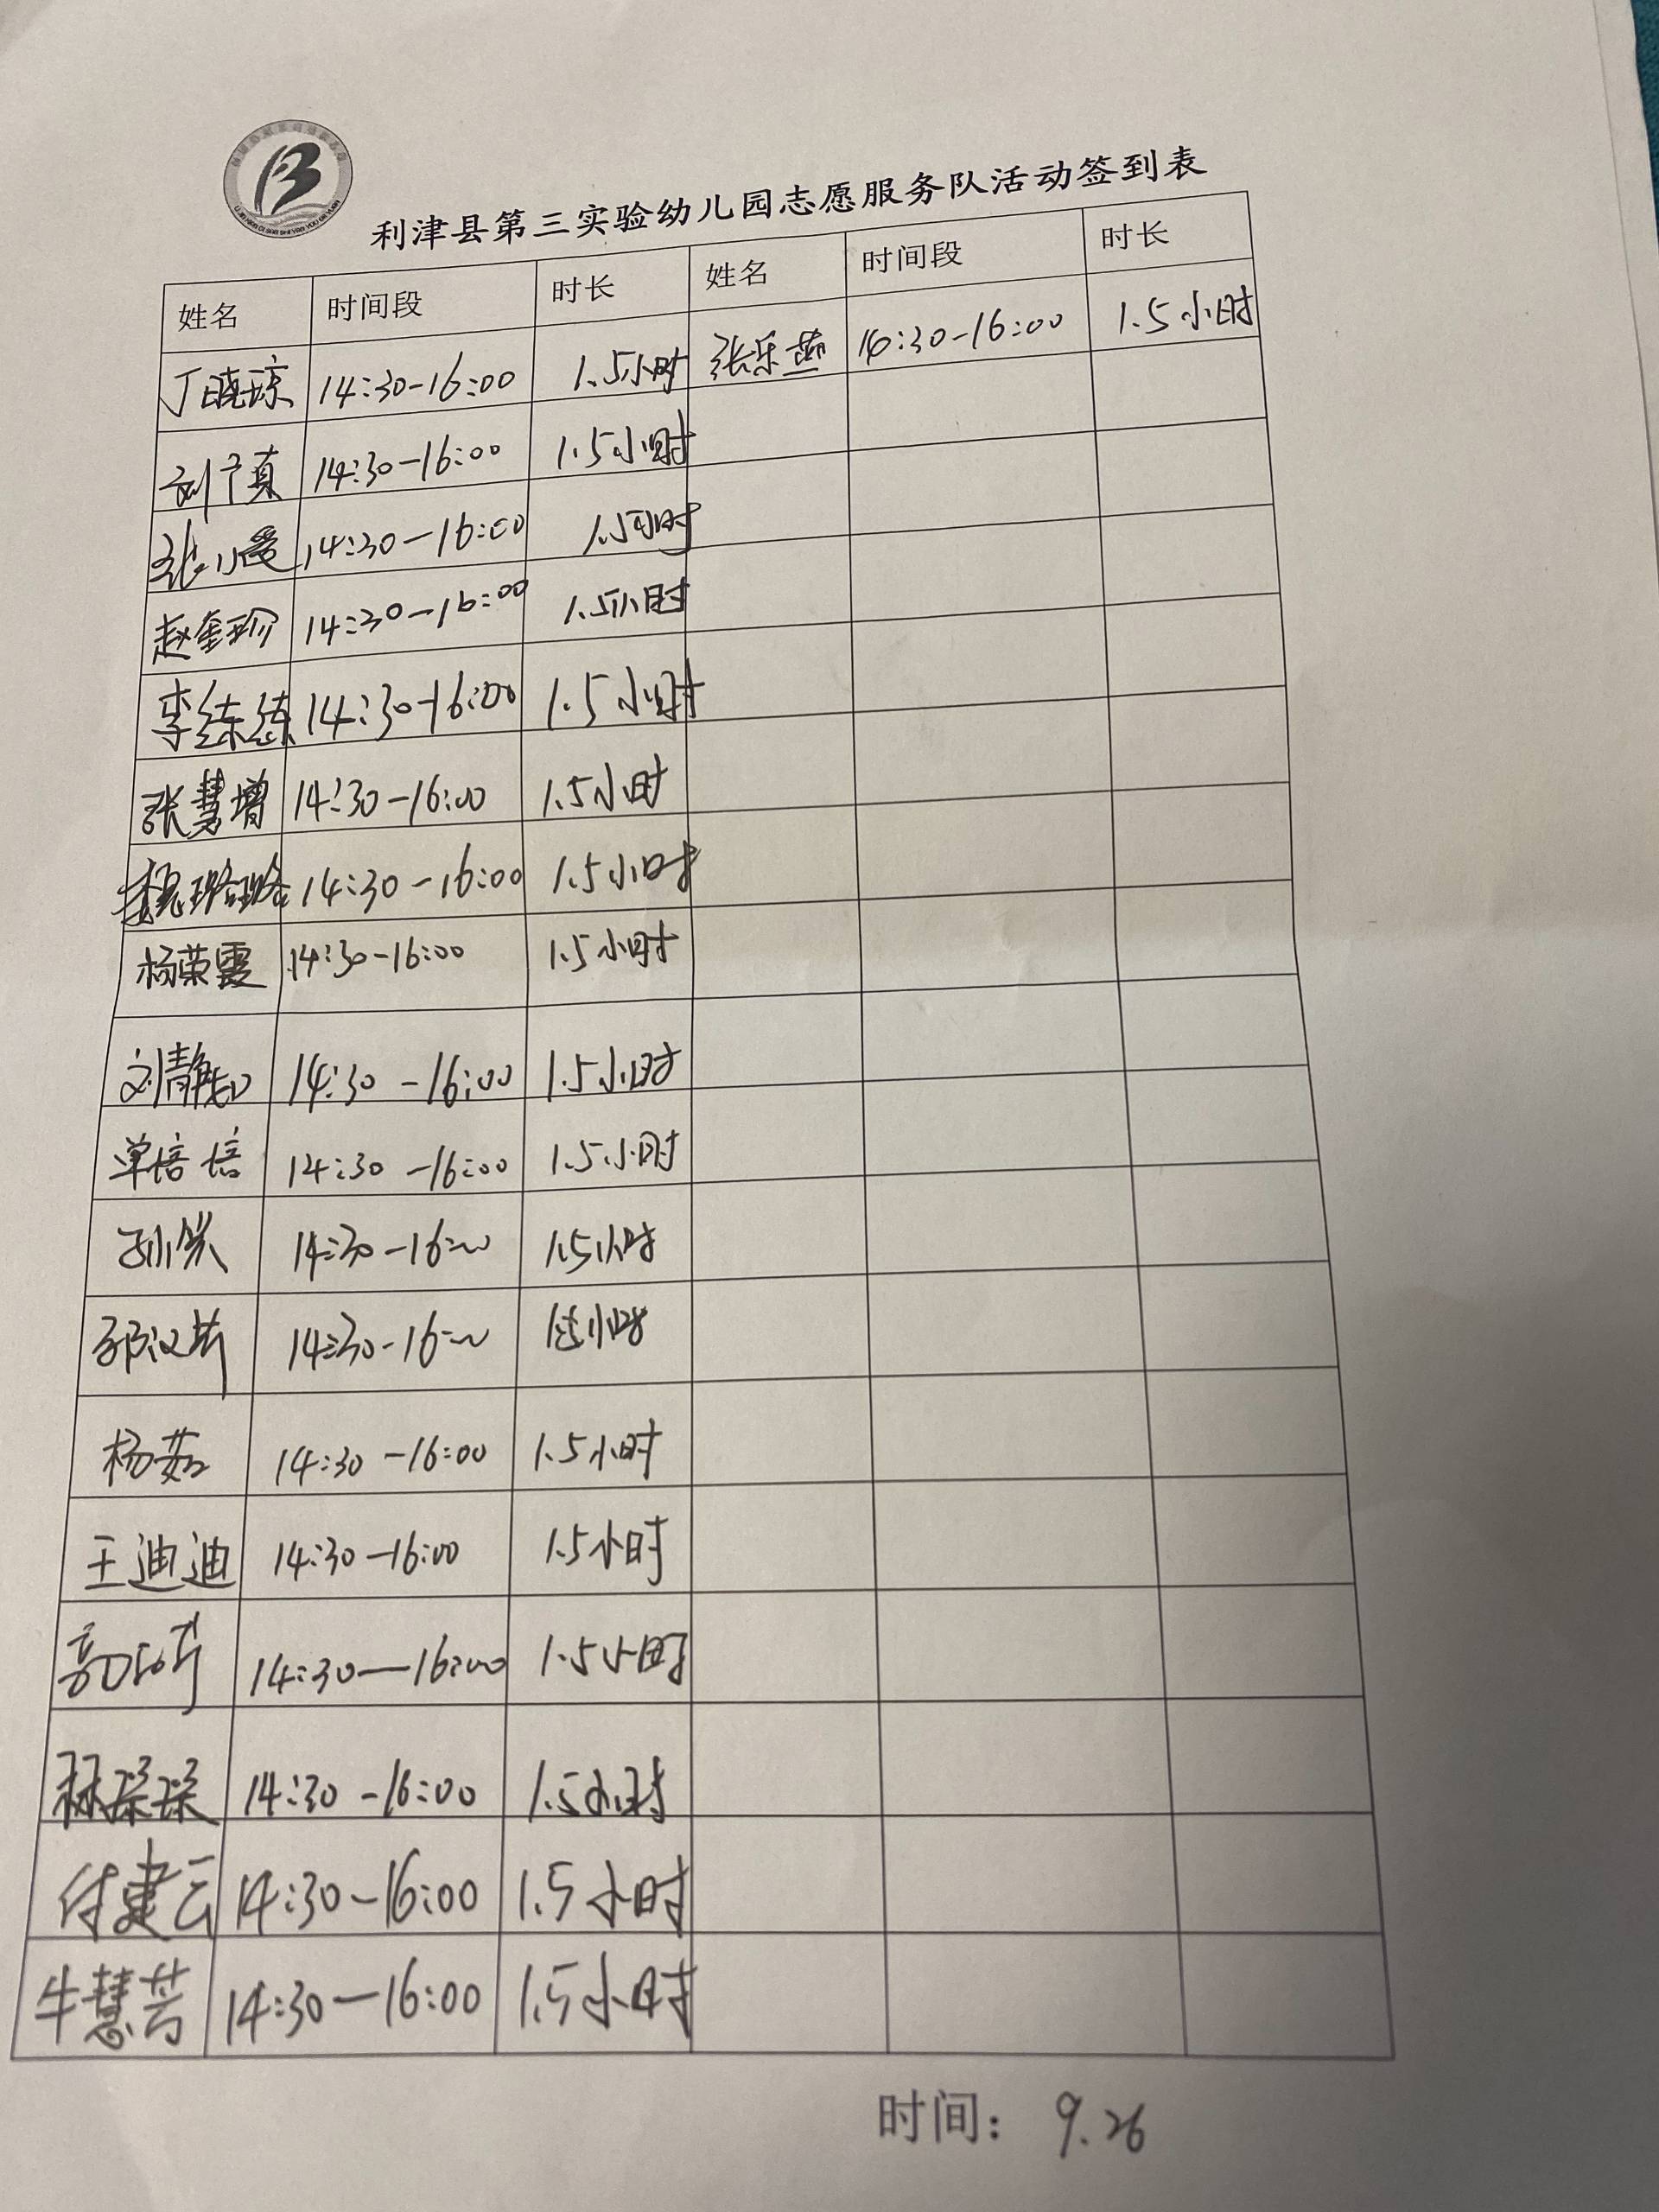 利津县第三实验幼儿园志愿服务队活动签到表
姓名 时间段 时长 姓名 时间段 时长
丁晓琼 14:30-16:00 1.5小时 张乐燕 14:30-16:00 1.5小时
刘宁真 14:30-16:00 1.5小时
张小爱 14:30-16:00 1.5小时
赵奎珍 14:30-16:00 1.5小时
李练练 14:30-16:00 1.5小时
张慧增 14:30-16:00 1.5小时
魏璐璐 14:30-16:00 1.5小时
杨荣霞 14:30-16:00 1.5小时
刘静 14:30-16:00 1.5小时
单培培 14:30-16:00 1.5小时
孙 14:30-16:00 1.5小时
14:30-16:00 1.5小时
杨茹 14:30-16:00 1.5小时
王迪迪 14:30-16:00 1.5小时
14:30-16:00 1.5小时
林琛琛 14:30-16:00 1.5小时
付建云 14:30-16:00 1.5小时
牛慧芳 14:30-16:00 1.5小时
时间：9.26